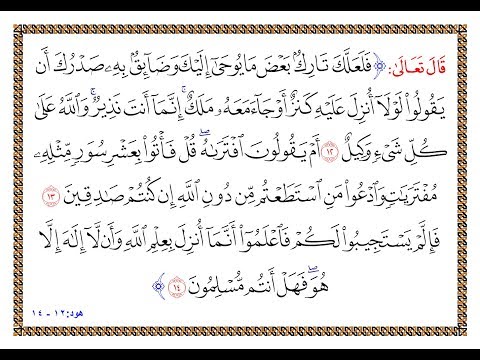 قَالَ تَعَالَىٰ: ﴿فَلَعَلَّكَ تَارِكٌۢ بَعْضَ مَا يُوحَىٰٓ إِلَيْكَ وَضَآئِقٌۢ بِهِۦ صَدْرُكَ أَن
يَقُولُوا۟ لَوْلَآ أُنزِلَ عَلَيْهِ كَنزٌ أَوْ جَآءَ مَعَهُۥ مَلَكٌ ۚ إِنَّمَآ أَنتَ نَذِيرٌ ۚ وَٱللَّهُ عَلَىٰ
كُلِّ شَىْءٍ وَكِيلٌ ١٢ أَمْ يَقُولُونَ ٱفْتَرَىٰهُ ۖ قُلْ فَأْتُوا۟ بِعَشْرِ سُوَرٍ مِّثْلِهِۦ
مُفْتَرَيَٰتٍ وَٱدْعُوا۟ مَنِ ٱسْتَطَعْتُم مِّن دُونِ ٱللَّهِ إِن كُنتُمْ صَٰدِقِينَ ١٣
فَإِلَّمْ يَسْتَجِيبُوا۟ لَكُمْ فَٱعْلَمُوٓا۟ أَنَّمَآ أُنزِلَ بِعِلْمِ ٱللَّهِ وَأَن لَّآ إِلَٰهَ إِلَّا
هُوَ ۖ فَهَلْ أَنتُم مُّسْلِمُونَ ١٤﴾
هود: ١٢ - ١٤